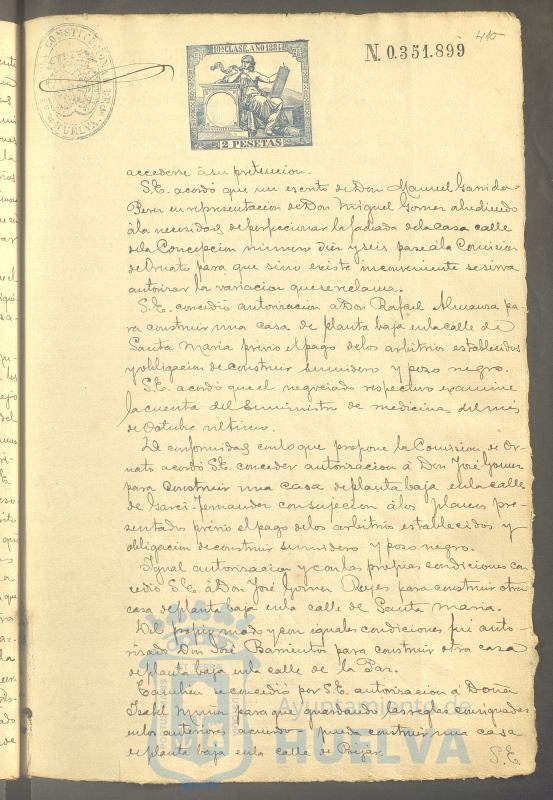 CONSTITUCIONAL
HUELVA
10ª CLASE. AÑO 1884
2 PESETAS
N. 0.351.899
415
accederse á su pretencion.
S.E. acordó que un escrito de Don Manuel Garrido
Perez en representacion de Don Miguel Gomez aludiendo
á la necesidad de perfeccionar la fachada de la casa calle
de la Concepcion número Diez y seis pase á la Comision
de Ornato para que sino existe inconveniente se sirva
autorizar la variacion que se reclama.
S.E. concedió autorizacion á Don Rafael Almanza pa-
ra construir una casa de planta baja en la calle de
Santa Maria prévio el pago de los arbitrios establecidos
y obligacion de construir sumidero y pozo negro.
S.E. acordó que el negociado respectivo examine
la cuenta del Suministro de medicina del mes
de Octubre último.
De conformidad con lo que propone la Comision de Or-
nato acordó S.E. conceder autorizacion á Don José Gomez
para construir una casa de planta baja en la calle
de Garci-Fernandez con sujecion á los planos pre-
sentados prévio el pago de los arbitrios establecidos y
obligacion de construir sumidero y pozo negro.
Igual autorizacion y con las propias condiciones con-
cedió S.E. á Don José Gomez Reyes para construir otra
casa de planta baja en la calle de Santa Maria.
Del propio modo y en iguales condiciones fué auto-
rizado Don José Barrientos para construir otra casa
de planta baja en la calle de la Paz.
Tambien se concedió por S.E. autorizacion á Doña
Isabel para que guardando las reglas consignadas
en los anteriores acuerdos pueda construir una casa
de planta baja en la calle de Bejar.
S.E.
Ayuntamiento de
HUELVA